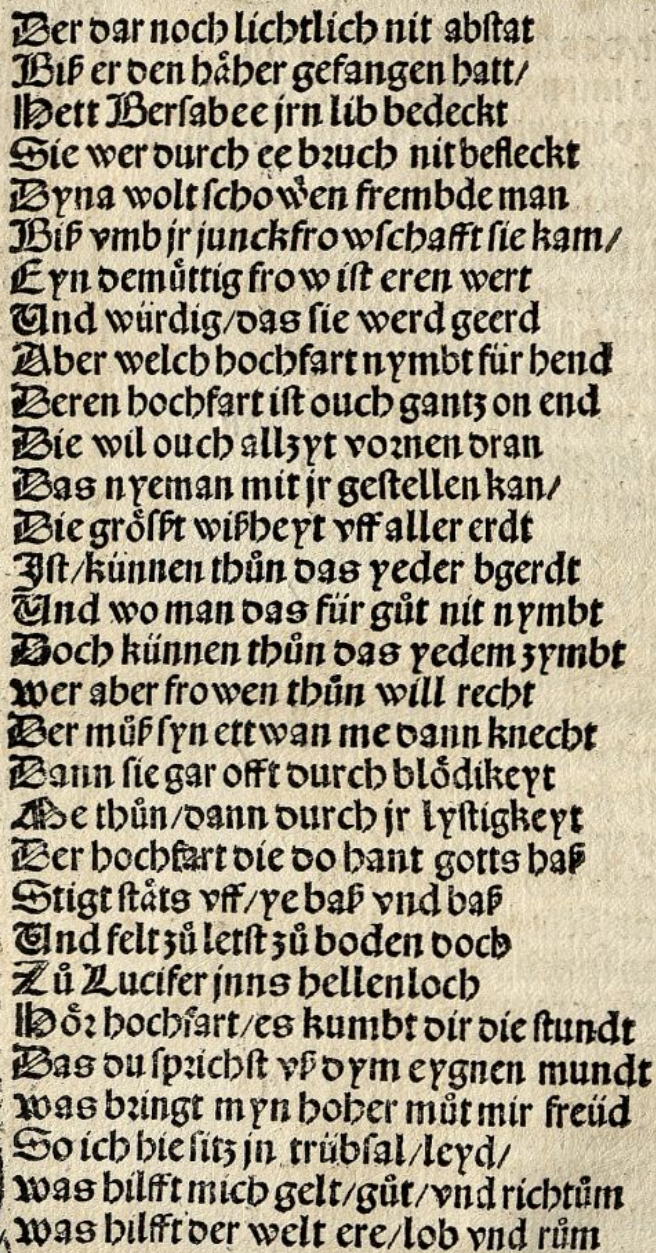 Der dar noch lichtlich nit abstat
Biß er den häber gefangen hatt/
Hett Bersabee jrn lib bedeckt
Sie wer durch ee bruch nit befleckt
Dyna wolt schowen frembde man
Biß vmb jr junckfrowschafft sie kam/
Eyn demůttig frow ist eren wert
Und würdig/das sie werd geerd
Aber welch hochfart nymbt für hend
Deren hochfart ist ouch gantz on end
Die wil ouch allzyt vornen dran
Das nyeman mit jr gestellen kan/
Die grôsßt wißheyt vff aller erdt
Jst/künnen thůn das yeder bgerdt
Und wo man das für gůt nit nymbt
Doch künnen thůn das yedem zymbt
Wer aber frowen thůn will recht
Der můß syn ettwan me dann knecht
Dann sie gar offt durch blôdikeyt
Me thůn/dann durch jr lystigkeyt
Der hochfart die do hant gotts haß
Stigt stäts vff/ye baß vnd baß
Und felt zů letst zů boden doch
Zů Lucifer jnns hellenloch
Hôr hochfart/es kumbt dir die stundt
Das du sprichst vß dym eygnen mundt
Was bringt myn hoher můt mir freüd
So ich hie sitz jn trübsal/leyd/
Was hilfft mich gelt/gůt/vnd richtům
Was hilfft der welt ere/lob vnd rům